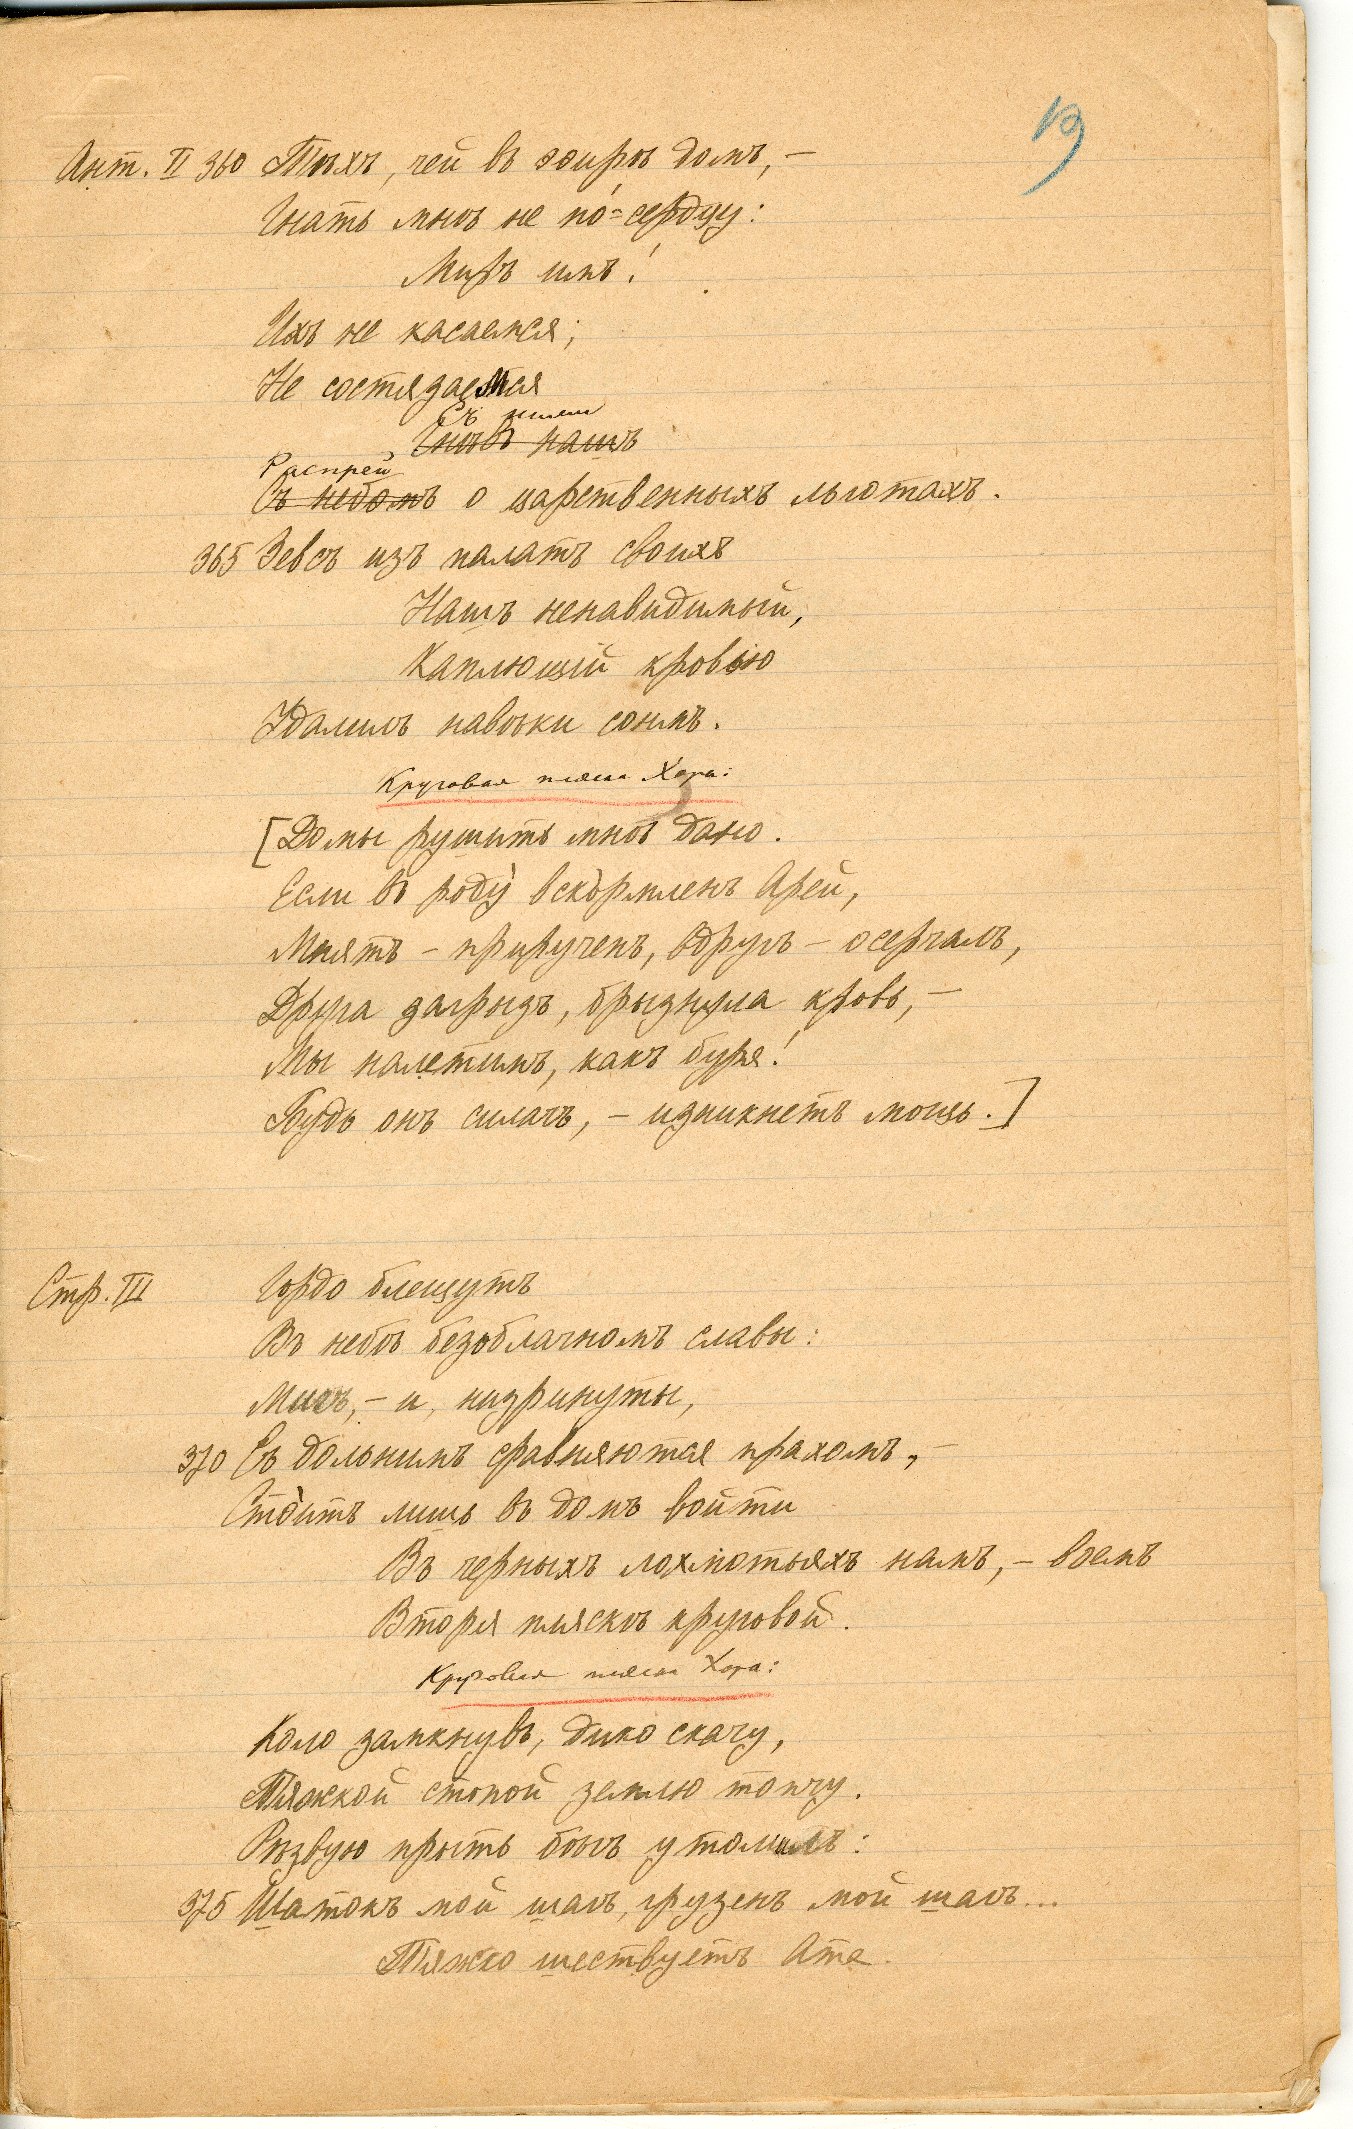 19
Ант. II 360 Тѣхъ, чей въ эѳирѣ домъ, —
Гнать мнѣ не по́-сердцу:
Миръ имъ!
Ихъ не касаемся;
Не состязаемся
Съ ними
Гнѣвъ нашъ
Распрей
Съ небомъ о царственныхъ льготахъ.
365 Зевсъ изъ палатъ своихъ
Нашъ ненавидимый,
Каплющій кровью
Удалилъ навѣки сонмъ.
Круговая пляска Хора:
[Домы рушить мнѣ дано.
Если въ роду̀ вскормленъ Арей,
Мнятъ — прирученъ, вдругъ — осерчалъ,
Друга загрызъ, брызнула кровь, —
Мы налетимъ, какъ буря!
Будь онъ силачъ, — изникнетъ мощь.]
Стр. III Гордо блещутъ
Въ небѣ безоблачномъ славы:
Мигъ, — и, низринуты,
370 Съ дольнимъ сравняются прахомъ, —
Сто̀итъ лишь въ домъ войти
Въ черныхъ лохмотьяхъ намъ, — воемъ
Вторя пляскѣ круговой.
Круговая пляска Хора:
Коло замкнувъ, дико скачу,
Тяжкой стопой землю топчу.
Рѣзвую прыть бѣгъ утомилъ:
375 Шатокъ мой шагъ, грузенъ мой шагъ...
Тяжко шествуетъ Ате.